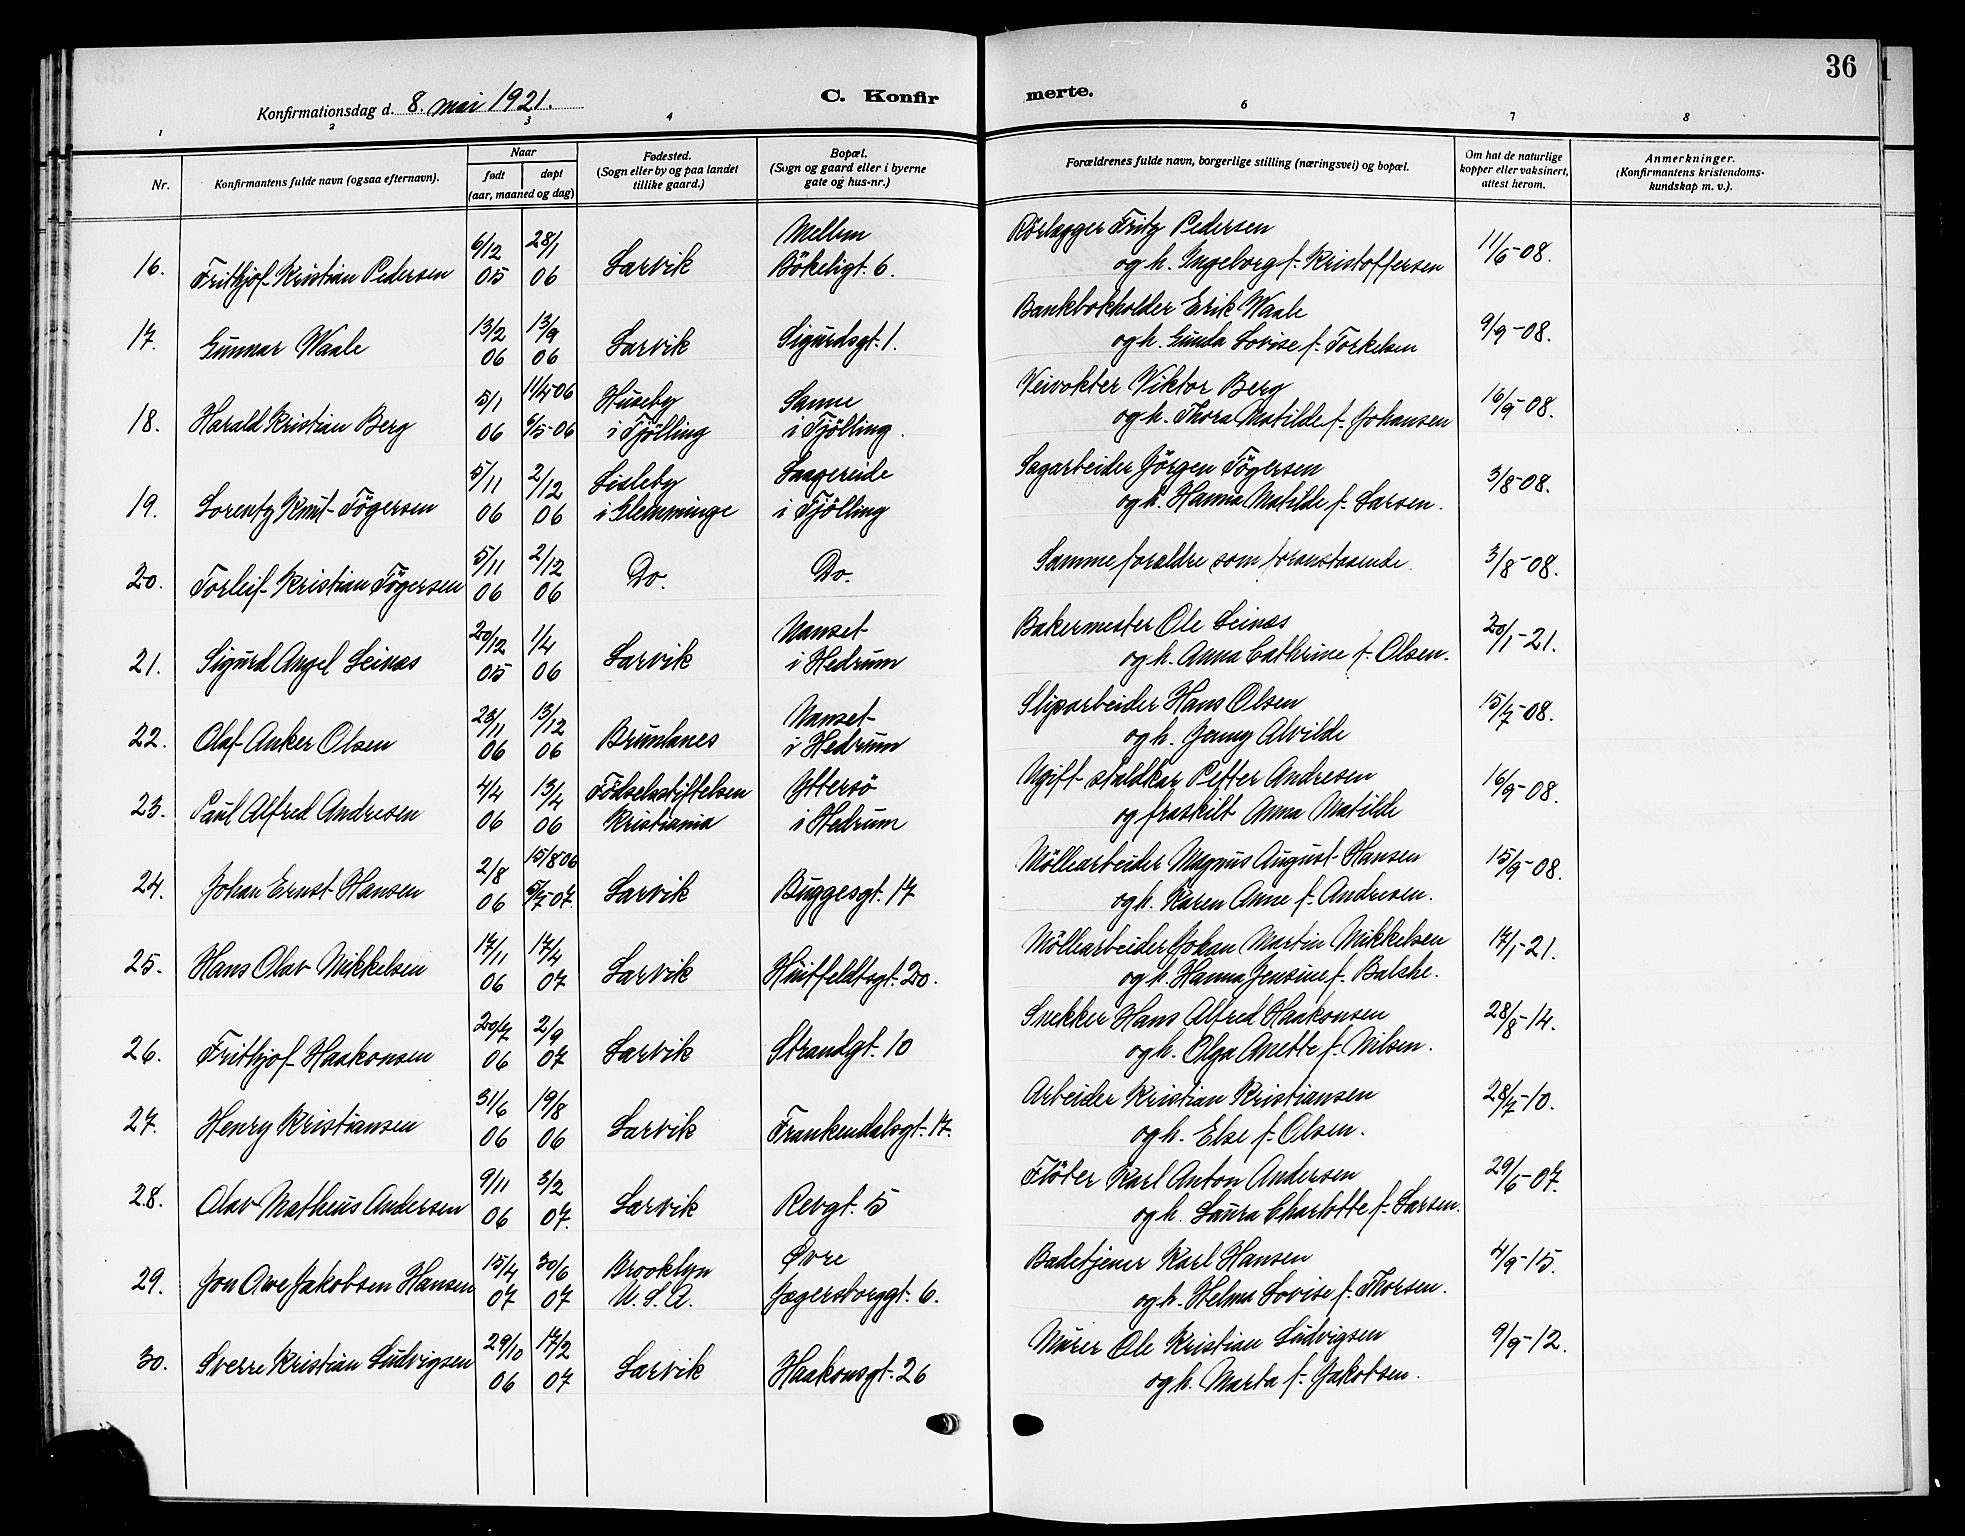 36
Konfirmationsdag d. 8. mai 1921.
C. Konfirmerte.
1 2 3 4 6 7 8
Nr.
Konfirmantens fulde navn (ogsaa efternavn).
Naar
født døpt
(aar, maaned og dag)
Fødested.
(Sogn eller by og paa landet
tillike gaard.)
Bopæl.
(Sogn og gaard eller i byerne
gate og hus-nr.)
Forældrenes fulde navn, borgerlige stilling (næringsvei) og bopæl.
Om hat de naturlige
kopper eller vaksinert,
attest herom.
Anmerkninger.
(Konfirmantens kristendoms-
kundskap m. v.).
6/12 28/1 Mellem Rörlægger Fritz Pedersen 11/6-08.
16. Frithjof Kristian Pedersen 05 06 Larvik Bökeligt. 6. og h. Ingeborg f. Kristoffersen
13/2 13/9 Bankbokholder Erik Waale 9/9-08.
17. Gunnar Waale 06 06 Larvik Sigurdsgt. 1. og h. Gunda Lovise f. Torkelsen
5/1 11/4-06 Huseby Sanne Veivokter Viktor Berg 16/9-08.
18. Harald Kristian Berg 06 6/5-06 i Tjölling i Tjölling. og h. Thora Matilde f. Johansen
5/11 2/12 Lisleby Laagereide Sagarbeider Jörgen Tögersen 3/8-08.
19. Lorentz Knut Tögersen 06 06 i Glemminge i Tjölling og h. Hanna Matilde f. Larsen.
5/11 2/12 Samme forældre som foranstaaende. 3/8-08.
20. Torleif Kristian Tögersen 06 06 Do. Do.
20/12 1/4 Nanset Bakermester Ole Leinæs 20/1-21.
21. Sigurd Angel Leinæs 05 06 Larvik i Hedrum og h. Anna Cathrine f. Olsen.
23/11 13/12 Nanset Sliparbeider Hans Olsen 15/7-08.
22. Olaf Anker Olsen 06 06 Brunlanes i Hedrum og h. Jenny Alvilde
4/4 13/4 Födselsstiftelsen Yttersö Ugift staldkar Petter Andresen 16/9-08.
23. Paul Alfred Andresen 06 06 Kristiania i Hedrum og fraskilt Anna Matilde
2/8 15/8-06 Möllearbeider Magnus August Hansen 15/9-08.
24. Johan Ernst Hansen 06 5/7-07. Larvik Buggesgt. 17 og h. Karen Anne f. Andresen.
17/11 17/4 Möllearbeider Johan Martin Mikkelsen 17/1-21.
25. Hans Olav Mikkelsen 06 07 Larvik Huitfeldtsgt. 20. og h. Hanna Jensine f. Balske.
20/7 2/9 Snekker Hans Alfred Haakonsen 28/8-14.
26. Frithjof Haakonsen 06 07 Larvik Strandgt. 10 og h. Olga Anette f. Nilsen.
31/6 19/8 Arbeider Kristian Kristiansen 28/7-10.
27. Henry Kristiansen 06 06 Larvik Frankendalsgt. 17. og h. Else f. Olsen.
9/11 3/2 Flöter Karl Anton Andersen 29/6-07.
28. Olav Matheus Andersen 06 07. Larvik Revgt. 5 og h. Laura Charlotte f. Larsen.
15/4 30/6 Brooklyn Øvre Badetjener Karl Hansen 4/9-15.
29. Jon Owe Jakobsen Hansen 07 07 U.S.A. Jægersborggt. 6. og h. Helma Lovise f. Thorsen.
29/10 17/2 Murer Ole Kristian Ludvigsen 9/9-12.
30. Sverre Kristian Ludvigsen 06 07 Larvik Haakonsgt. 26 og h. Marta f. Jakobsen.